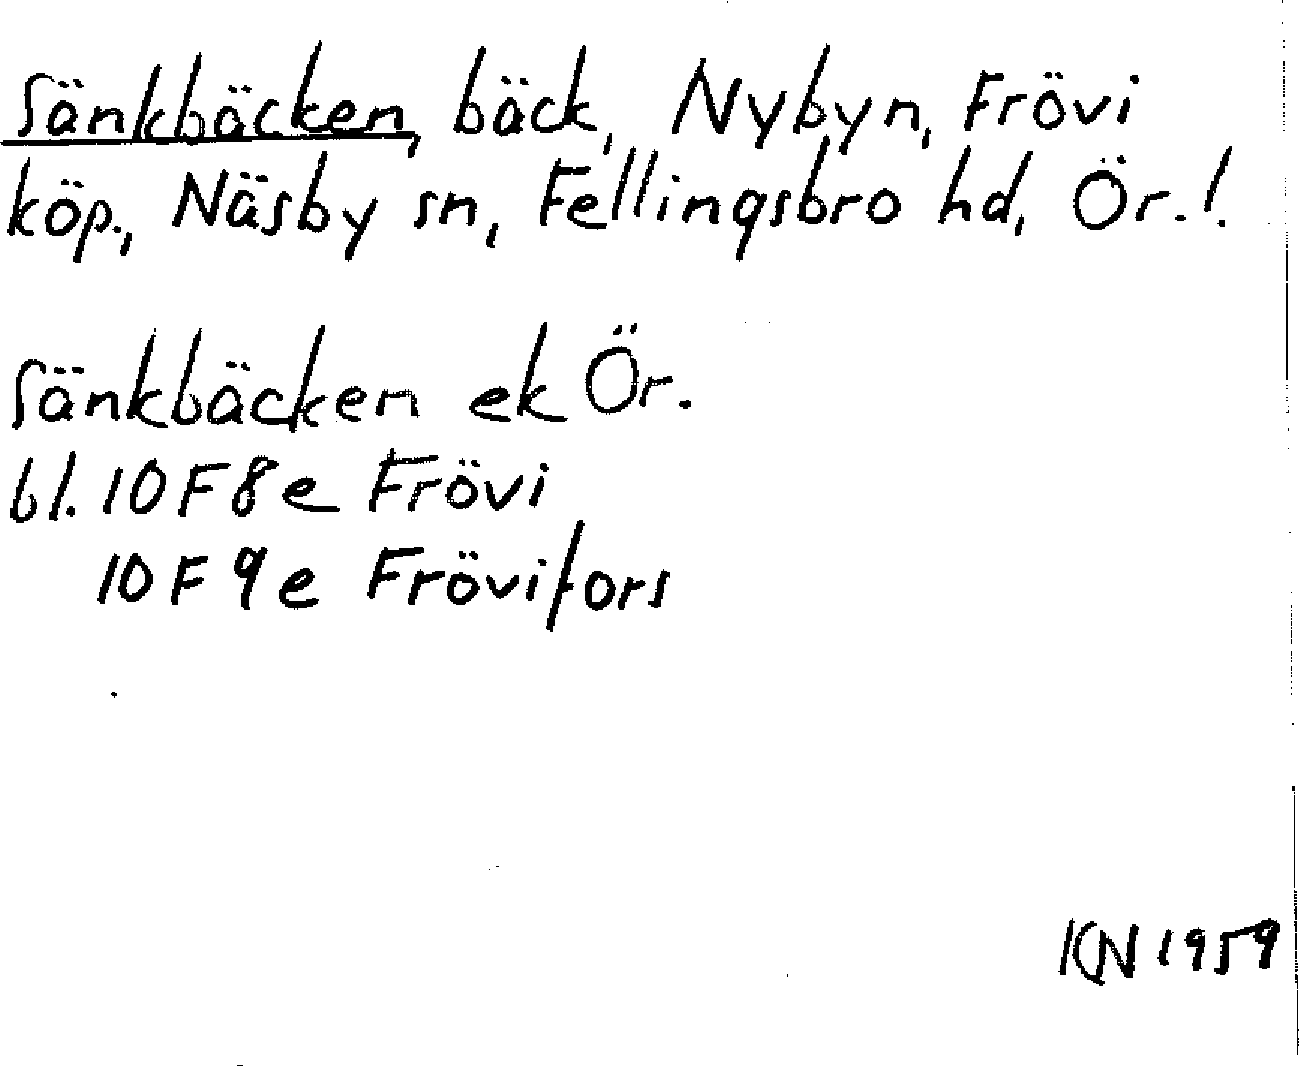 Sänkbäcken, bäck, Nybyn, Frövi
köp., Näsby sn, Fellingsbro hd, Ör.!.
Sänkbäcken ek Ör.
bl. 10F8e Frövi
10F9e Frövifors
KN 1959